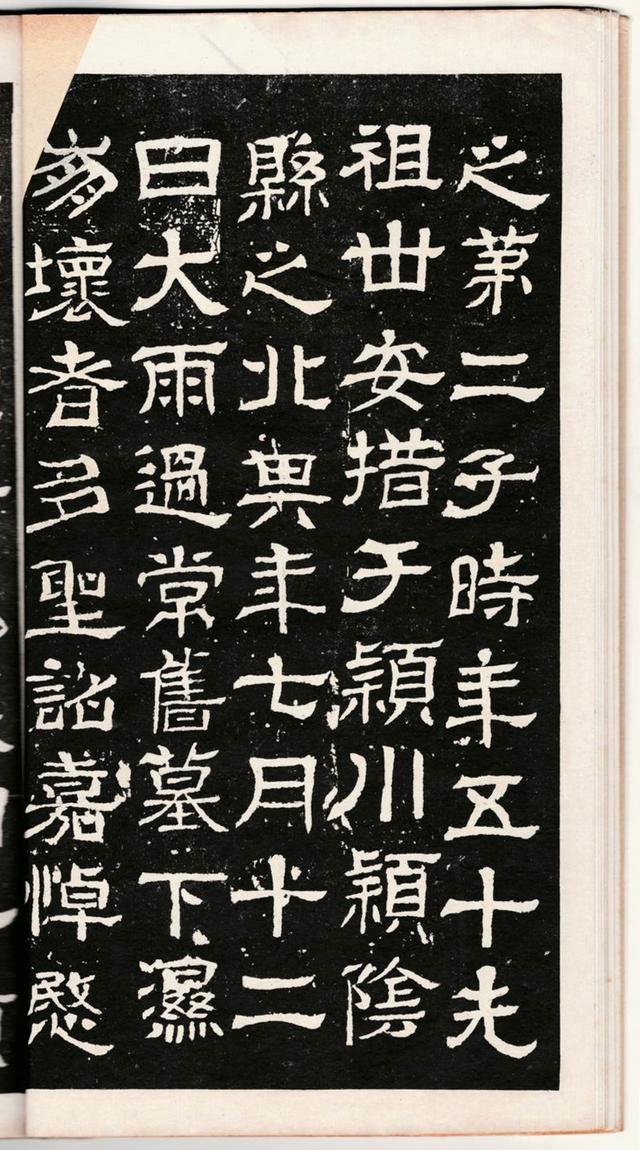 之第二子時年五十先
祖世安措于潁川潁陰
縣之北其年七月十二
日大雨過常舊墓下濕
崩壞者多聖詔嘉悼愍